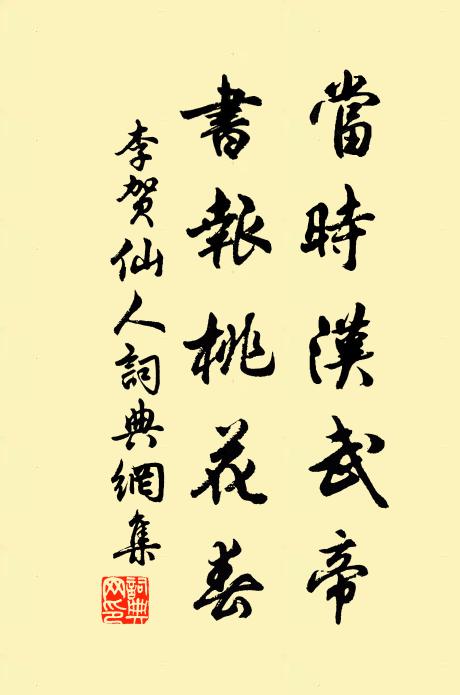 當時漢武帝
書報桃花春
李贺仙人詞典網集
詞典
网印